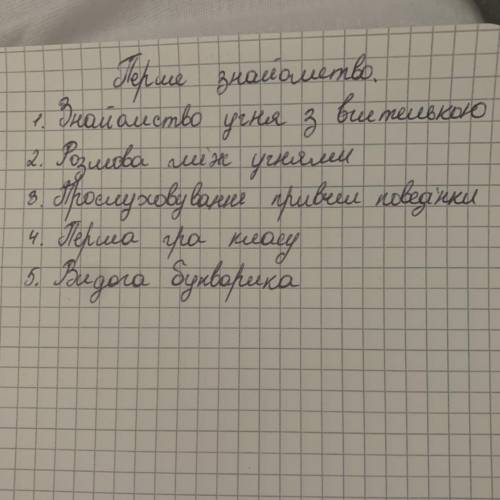 Перше знайомство.
1. Знайомство учня з вчителькою
2. Розмова між учнями
3. Прослуховування правил поведінки
4. Перша гра класу
5. Видача букварика